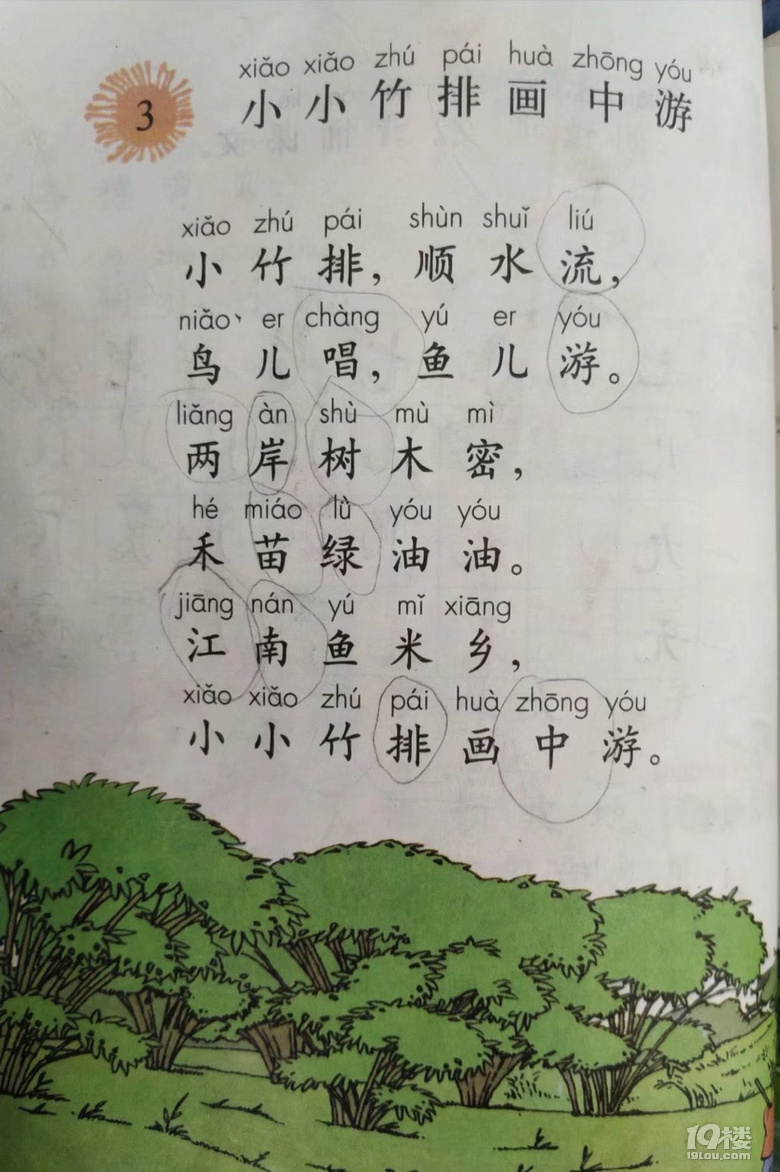 3
xiǎo xiǎo zhú pái huà zhōng yóu
小小竹排画中游
xiǎo zhú pái shùn shuǐ liú
小竹排，顺水流，
niǎo er chàng yú er yóu
鸟儿唱，鱼儿游。
liǎng àn shù mù mì
两岸树木密，
hé miáo lǜ yóu yóu
禾苗绿油油。
jiāng nán yú mǐ xiāng
江南鱼米乡，
xiǎo xiǎo zhú pái huà zhōng yóu
小小竹排画中游。
19楼
19lou.com